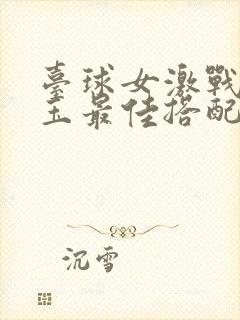 臺球女激戰
王最佳搭配
沉雪